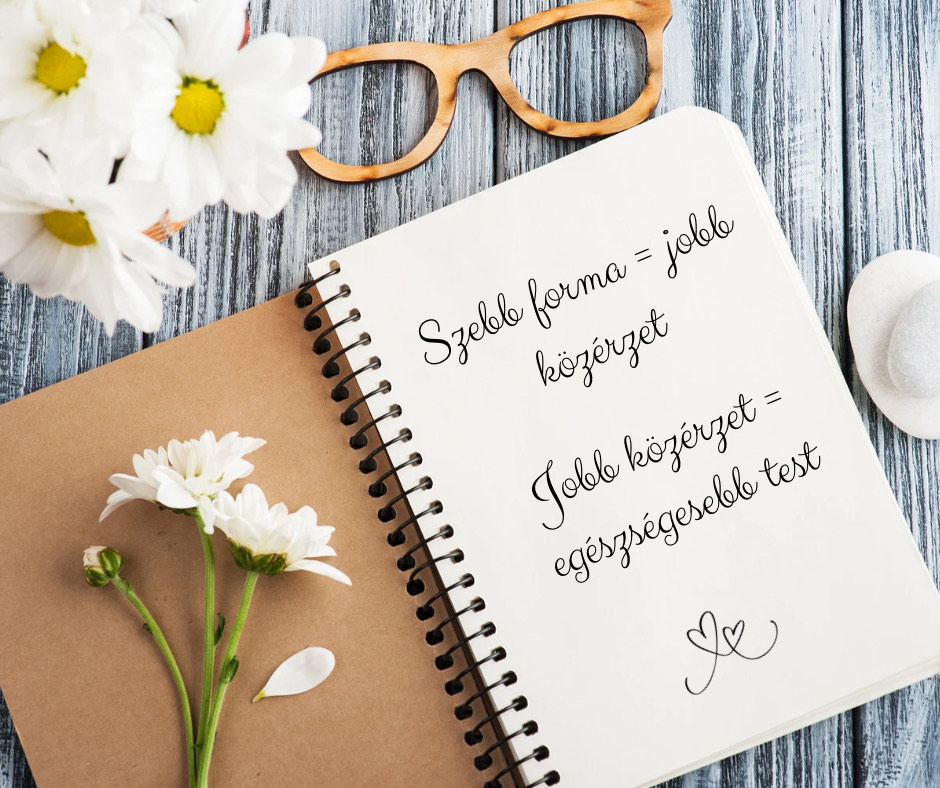 Szebb forma = jobb
közérzet
Jobb közérzet =
egészségesebb test